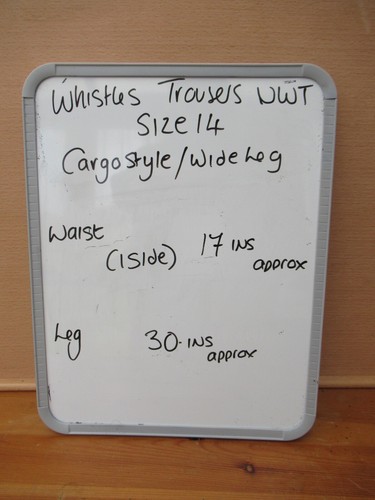 Whistles Trousers NWT
Size 14
Cargo style/Wide Leg
Waist
(1 side) 17 INS
approx
Leg 30. INS
approx